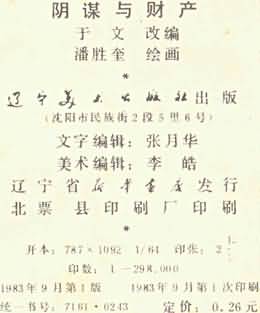 阴谋与财产
于文 改编
潘胜奎 绘画
*
辽宁美术出版社出版
(沈阳市民族街2段5里6号)
文字编辑:张月华
美术编辑:李皓
辽宁省新华书店发行
北票县印刷厂印刷
*
开本:787×1092 1/64 印张:2
印数:1—298,000
1983年9月第1版 1983年9月第1次印刷
统一书号:7161·0243 定价:0.26元